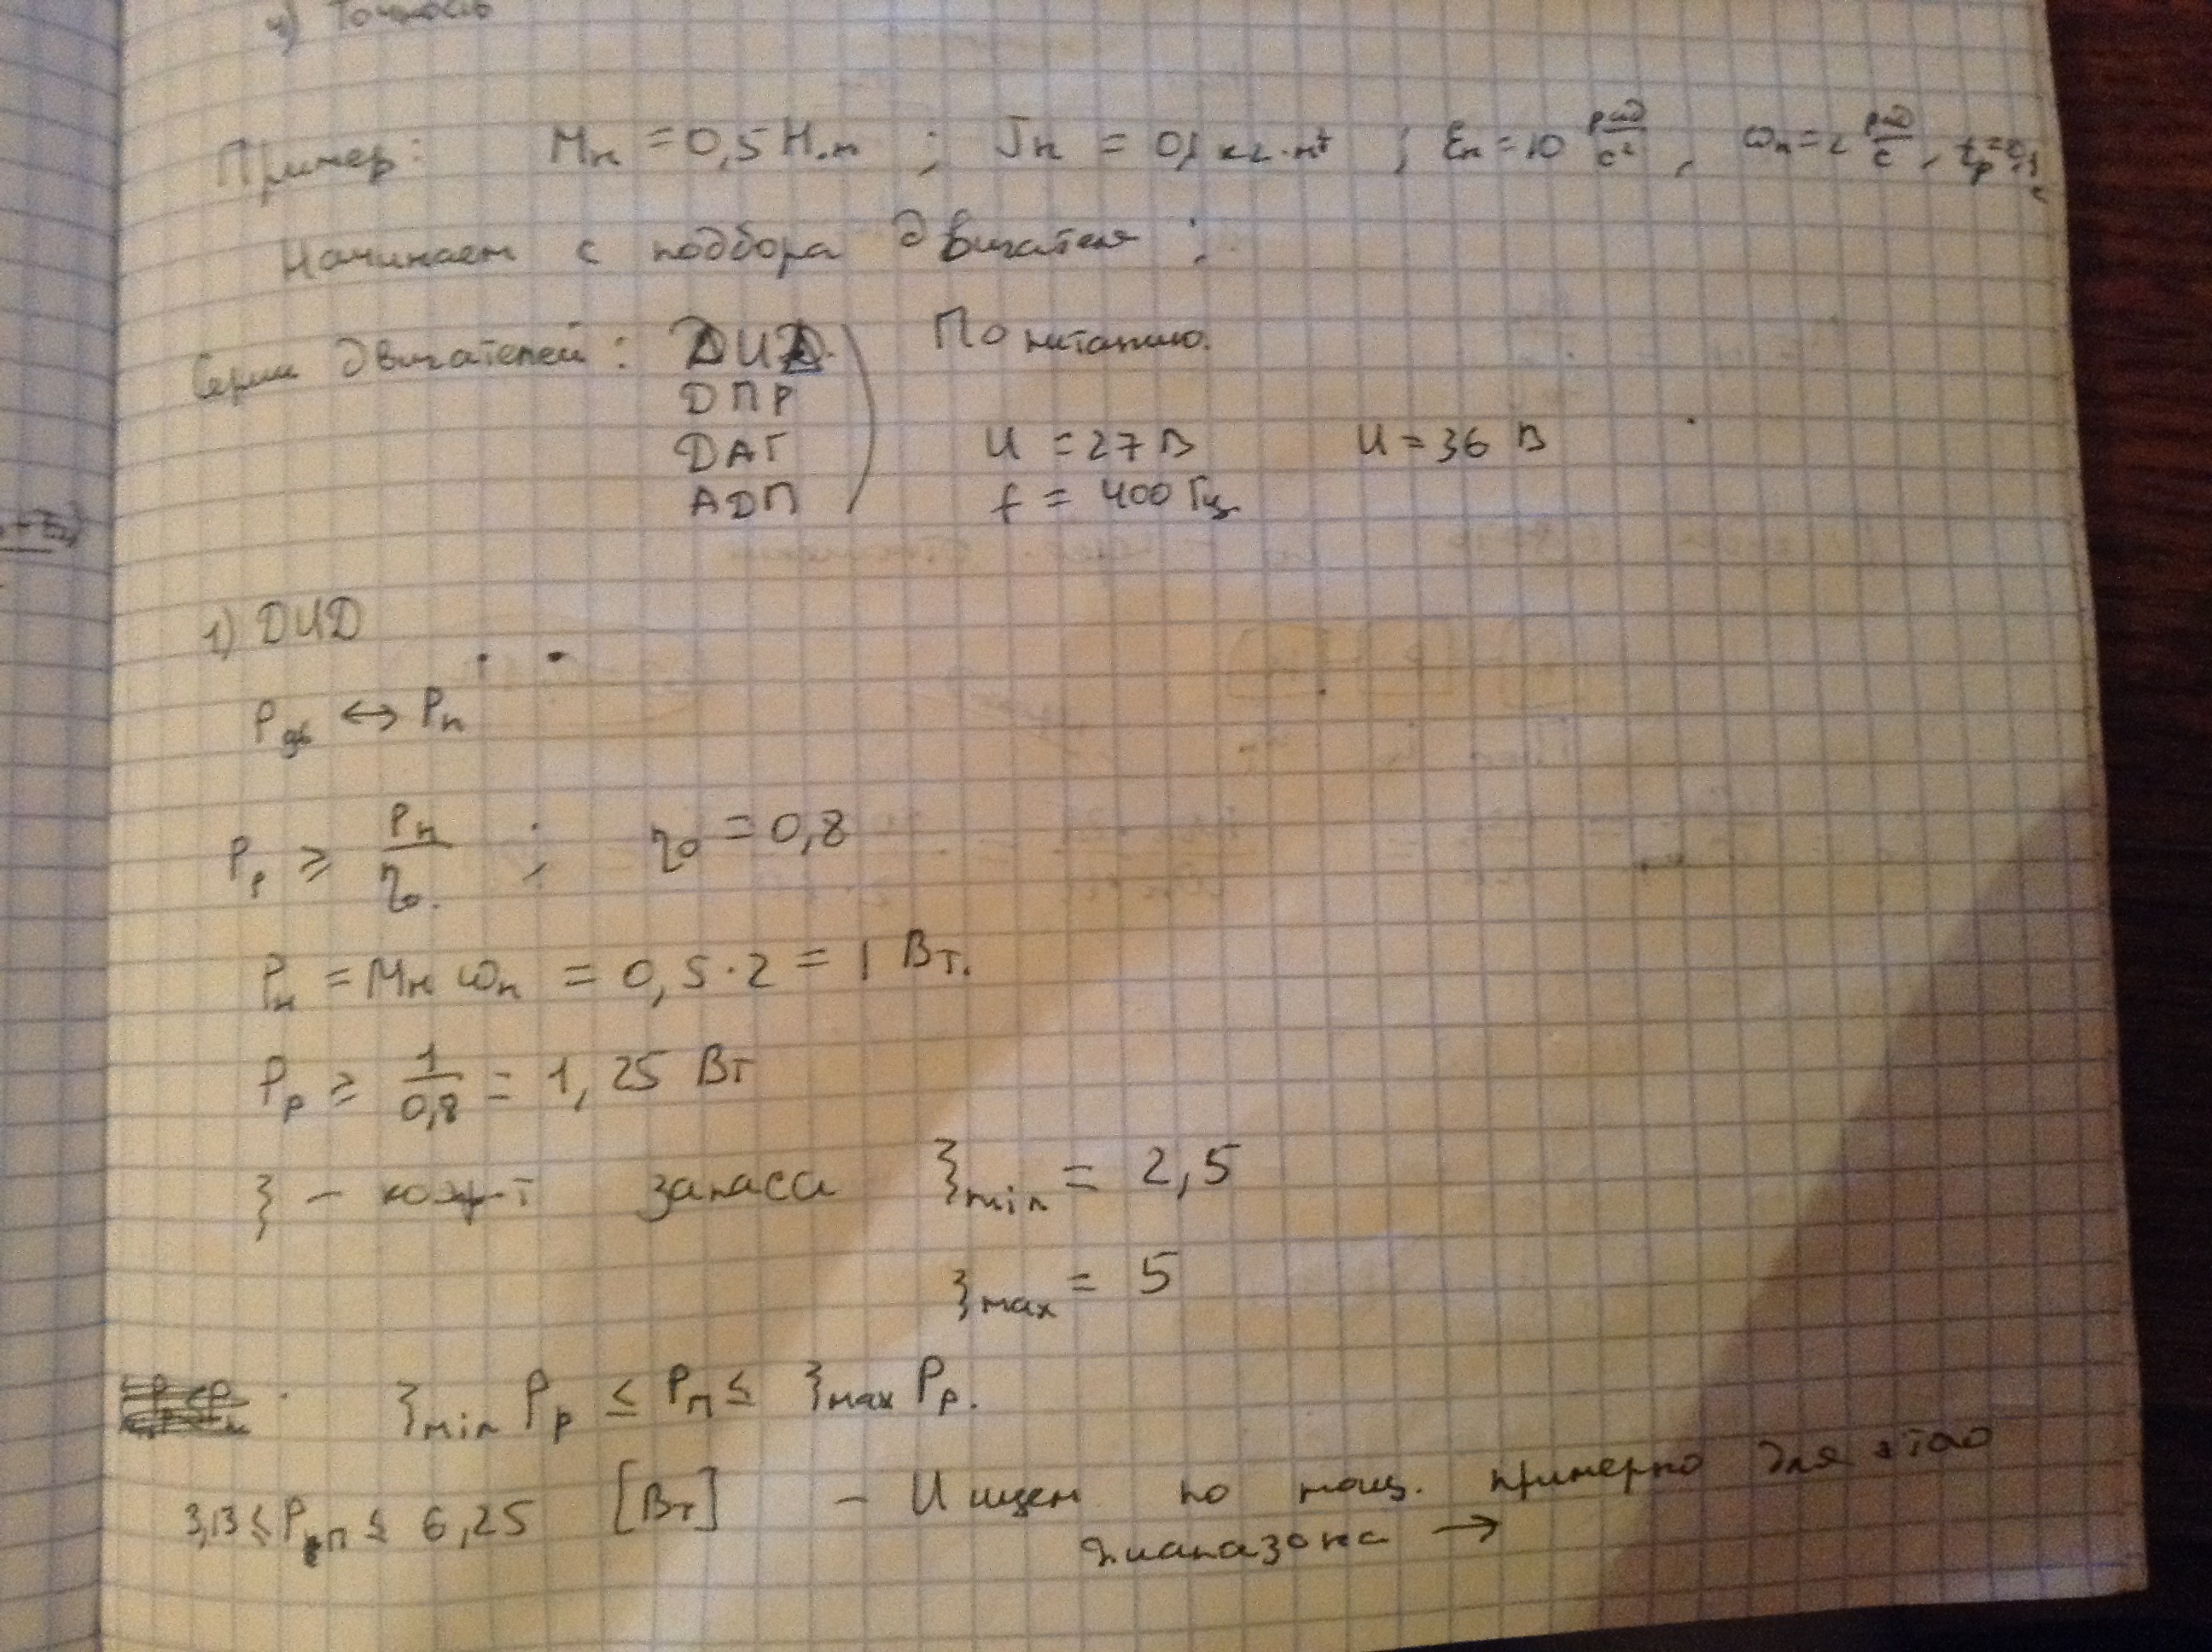 4) Точность
Пример: Mн = 0,5 Н.м ; Jн = 0,1 кг·м² ; εн = 10 рад/с² , ωн = 2 рад/с ,
Начинаем с подбора двигателя :
Серии двигателей : ДИД По питанию.
ДПР
ДАГ U = 27 В U = 36 В
АДП f = 400 Гц
1) ДИД
Pдв ↔ Pн
Pр ≥ Pн/η₀ ; η₀ = 0,8
Pн = Mн ωн = 0,5 · 2 = 1 Вт.
Pр ≥ 1/0,8 = 1,25 Вт
ξ – коэф-т запаса ξmin = 2,5
ξmax = 5
ξmin Pр ≤ Pп ≤ ξmax Pр.
3,13 ≤ Pп ≤ 6,25 [Вт] – Ищем по мощ. примерно для этого
диапазона →